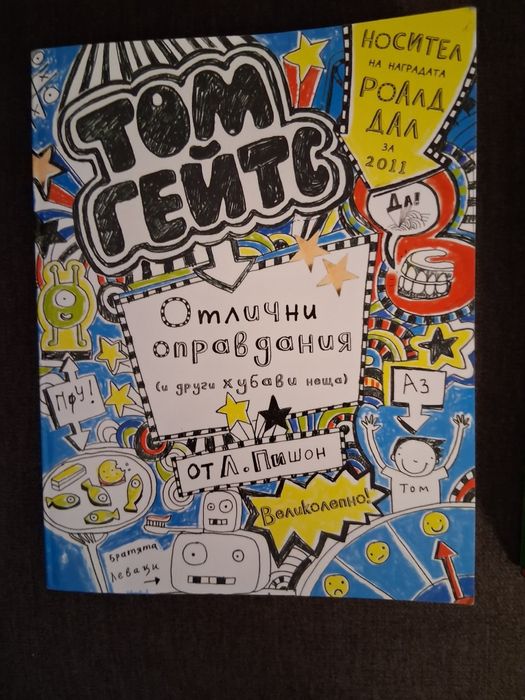 ТОМ
ГЕЙТС
НОСИТЕЛ
НА НАГРАДАТА
РОАЛД
ДАЛ
ЗА
2011
ДА!
Отлични
оправдания
(и други хубави неща)
ПФУ!
АЗ
ОТ Л. Пишон
Том
Великолепно!
Братята
Леваци